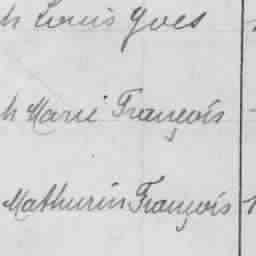 h Louis Yves
h Marie François
Mathurin François